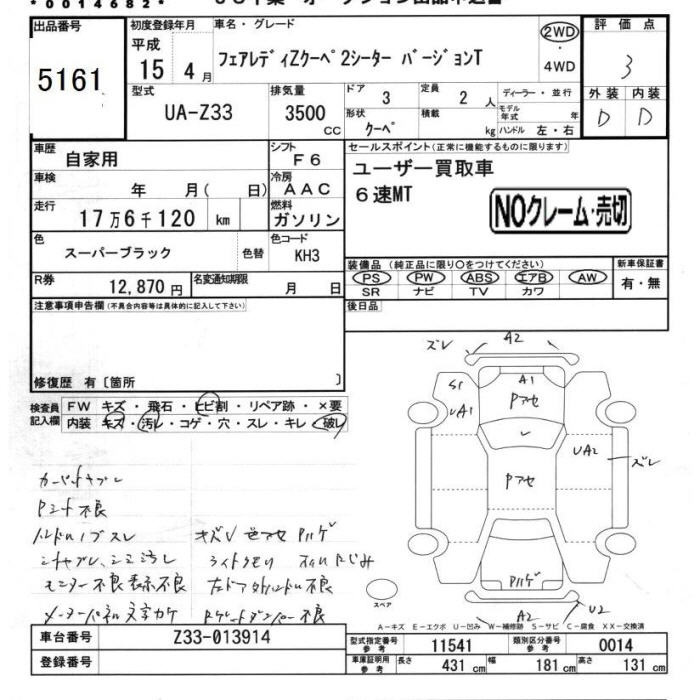 *0014682*
出品番号
5161
初度登録年月
平成
15 4月
車名・グレード
フェアレディZクーペ 2シーター バージョンT
2WD
・
4WD
評価点
3
外装 内装
D D
型式
UA-Z33
排気量
3500
CC
ドア 3
形状 クーペ
定員 2 人
積載 kg
ディーラー・並行
モデル年式 年
ハンドル 左・右
車歴 自家用
シフト F6
車検 年 月( 日)
冷房 AAC
走行 17万6千120 km
燃料 ガソリン
色 スーパーブラック 色替
色コード KH3
R券 12,870円
名変通知期限 月 日
セールスポイント(正常に機能するものに限ります)
ユーザー買取車
6速MT
NOクレーム・売切
装備品(純正品に限り○をつけてください)
PS PW ABS エアB AW
SR ナビ TV カワ
新車保証書
有・無
後日品
注意事項申告欄(不具合内容等は具体的に記入して下さい)
修復歴 有〔箇所 〕
検査員記入欄
FW キズ・飛石・ヒビ割・リペア跡・×要
内装 キズ・汚レ・コゲ・穴・スレ・キレ・破レ
ズレ A2
S1 A1
UA1 Pアセ
レ
UA2 ズレ
Pアセ
Pハゲ
A2 U2
スペア
Pミント不良
ハンドル ノブスレ
キズV 色アセ Pハゲ
シートヤブレ、シミ汚レ
ライトクモリ
モニター不良表示不良
左ドア外ハンドル不良
メーターパネル文字カケ
A-キズ E-エクボ U-凹み W-補修跡 S-サビ C-腐食 XX-交換済
車台番号 Z33-013914
登録番号
型式指定番号 参考 11541
類別区分番号 参考 0014
車庫証明用 参考 長さ 431 cm 幅 181 cm 高さ 131 cm